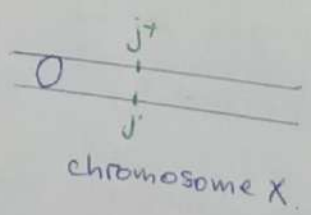 j+
j
chromosome X.